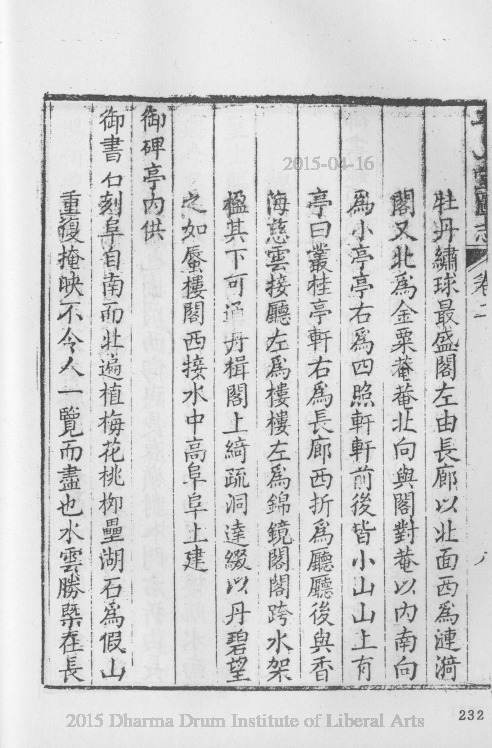 平山堂圖志 卷二
牡丹繡球最盛閣左由長廊以北面西為漣漪
閣又北為金粟菴菴北向與閣對菴以內南向
為小亭亭右為四照軒軒前後皆小山山上有
亭曰叢桂亭軒右為長廊西折為廳廳後與香
海慈雲接廳左為樓樓左為錦鏡閣閣跨水架
楹其下可通丹楫閣上綺疏洞達綴以丹碧望
之如蜃樓閣西接水中高阜阜上建
御碑亭內供
御書石刻阜自南而北遍植梅花桃柳壘湖石為假山
重複掩映不令人一覽而盡也水雲勝槩在長
2015-04-16
232
2015 Dharma Drum Institute of Liberal Arts